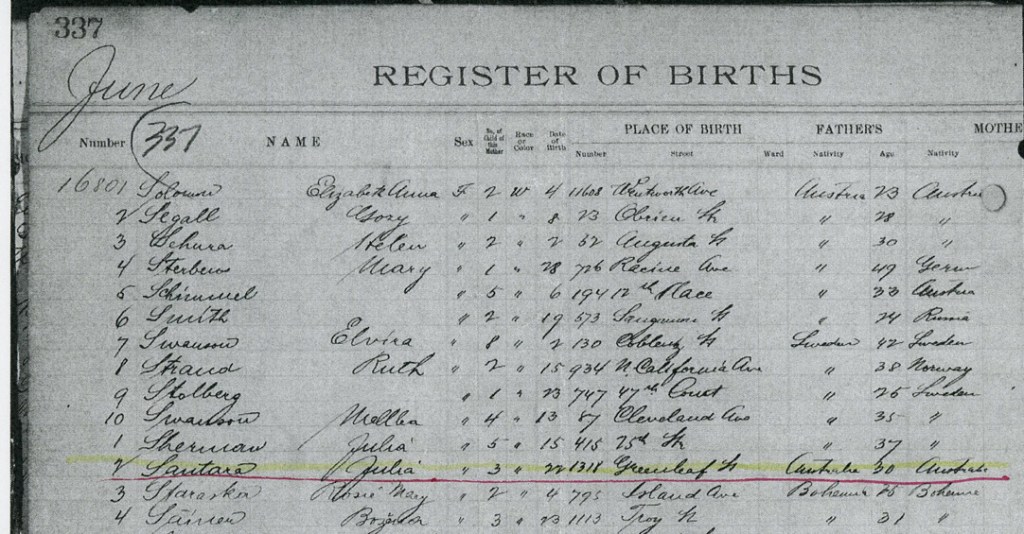 337
June
REGISTER OF BIRTHS
Number 337 NAME Sex No. of Child of this Mother Race or Color Date of Birth PLACE OF BIRTH Number Street Ward FATHER'S Nativity Age MOTHE Nativity
16801 Solomon Elizabeth Anna F 2 W 4 11608 Wentworth Ave Austria 23 Austria
2 Segall " 1 " 8 23 Obrien St " 28 "
3 Sehura Helen " 2 " 2 52 Augusta St " 30 "
4 Mary " 1 " 28 726 Racine Ave " 49 Germ
5 Schimmel " 5 " 6 194 12th Place " 33 Austria
6 Smith " 2 " 19 573 Sangamon St " 24 Russia
7 Swanson Elvira " 8 " 2 130 St Sweden 42 Sweden
8 Strand Ruth " 2 " 15 934 N. California Ave " 38 Norway
9 Stolberg " 1 " 23 747 47th Court " 25 Sweden
10 Swanson " 4 " 13 87 Cleveland Ave " 35 "
1 Sherman Julia " 5 " 15 415 75th St " 37 "
2 Santara Julia " 3 " 22 1318 Greenleaf St Australia 30 Australia
3 Rosie May " 2 " 4 795 Island Ave Bohemia 25 Bohemia
4 " 3 " 23 1113 Troy St " 31 "